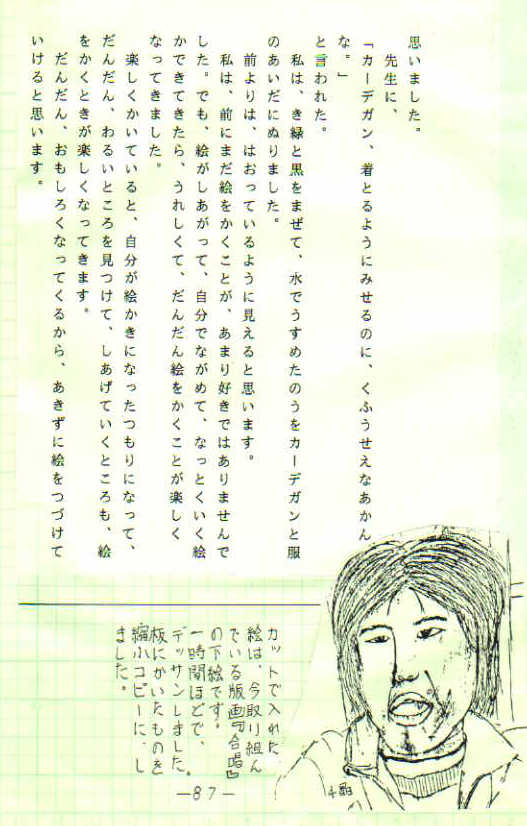 思いました。
先生に、
「カーデガン、着とるようにみせるのに、くふうせえなあかん
な。」
と言われた。
私は、き緑と黒をまぜて、水でうすめたのうをカーデガンと服
のあいだにぬりました。
前よりは、はおっているように見えると思います。
私は、前にまだ絵をかくことが、あまり好きではありませんで
した。でも、絵がしあがって、自分でながめて、なっとくいく絵
かできてきたら、うれしくて、だんだん絵をかくことが楽しく
なってきました。
楽しくかいていると、自分が絵かきになったつもりになって、
だんだん、わるいところを見つけて、しあげていくところも、絵
をかくときが楽しくなってきます。
だんだん、おもしろくなってくるから、あきずに絵をつづけて
いけると思います。
カットで入れた
絵は、今取り組ん
でいる版画『合唱』
の下絵です。
一時間ほどで、
デッサンしました。
板にかいたものを
縮小コピーに、し
ました。
—87—